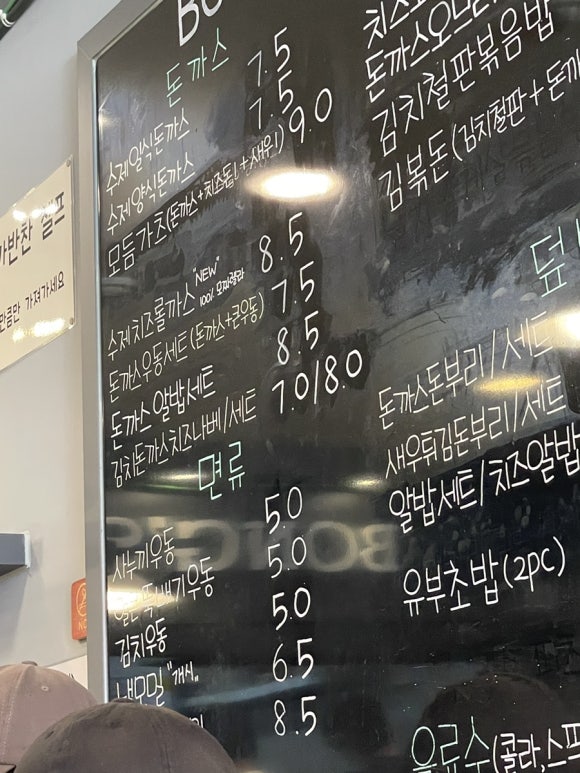 BO
돈까스
수제일식돈까스 7.5
수제양식돈까스 7.5
모듬가츠(돈까스+치즈돕1+새우1) 9.0
수제치즈롤까스 "NEW" 100% 모짜렐라 8.5
돈까스우동세트(돈까스+큰우동) 7.5
돈까스 알밥세트 8.5
김치돈까스치즈나베/세트 7.0/8.0
면류
사누끼우동 5.0
뚝배기우동 5.0
김치우동 5.0
냉모밀 "개시" 6.5
8.5
돈까스오므라
김치철판볶음밥
김볶돈(김치철판+돈까
덮
돈까스돈부리/세트
새우튀김돈부리/세트
알밥세트/치즈알밥
유부초밥(2pc)
음료수(콜라,스프
가반찬 셀프
만큼만 가져가세요
NO